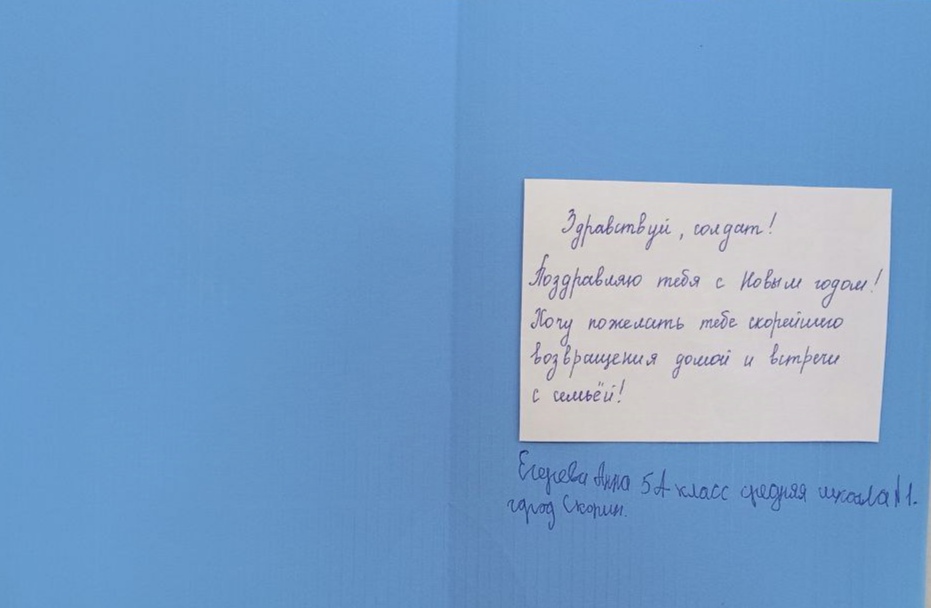 Здравствуй, солдат!
Поздравляю тебя с Новым годом!
Хочу пожелать тебе скорейшего
возвращения домой и встречи
с семьёй!
Анна 5А класс средняя школа №1.
город